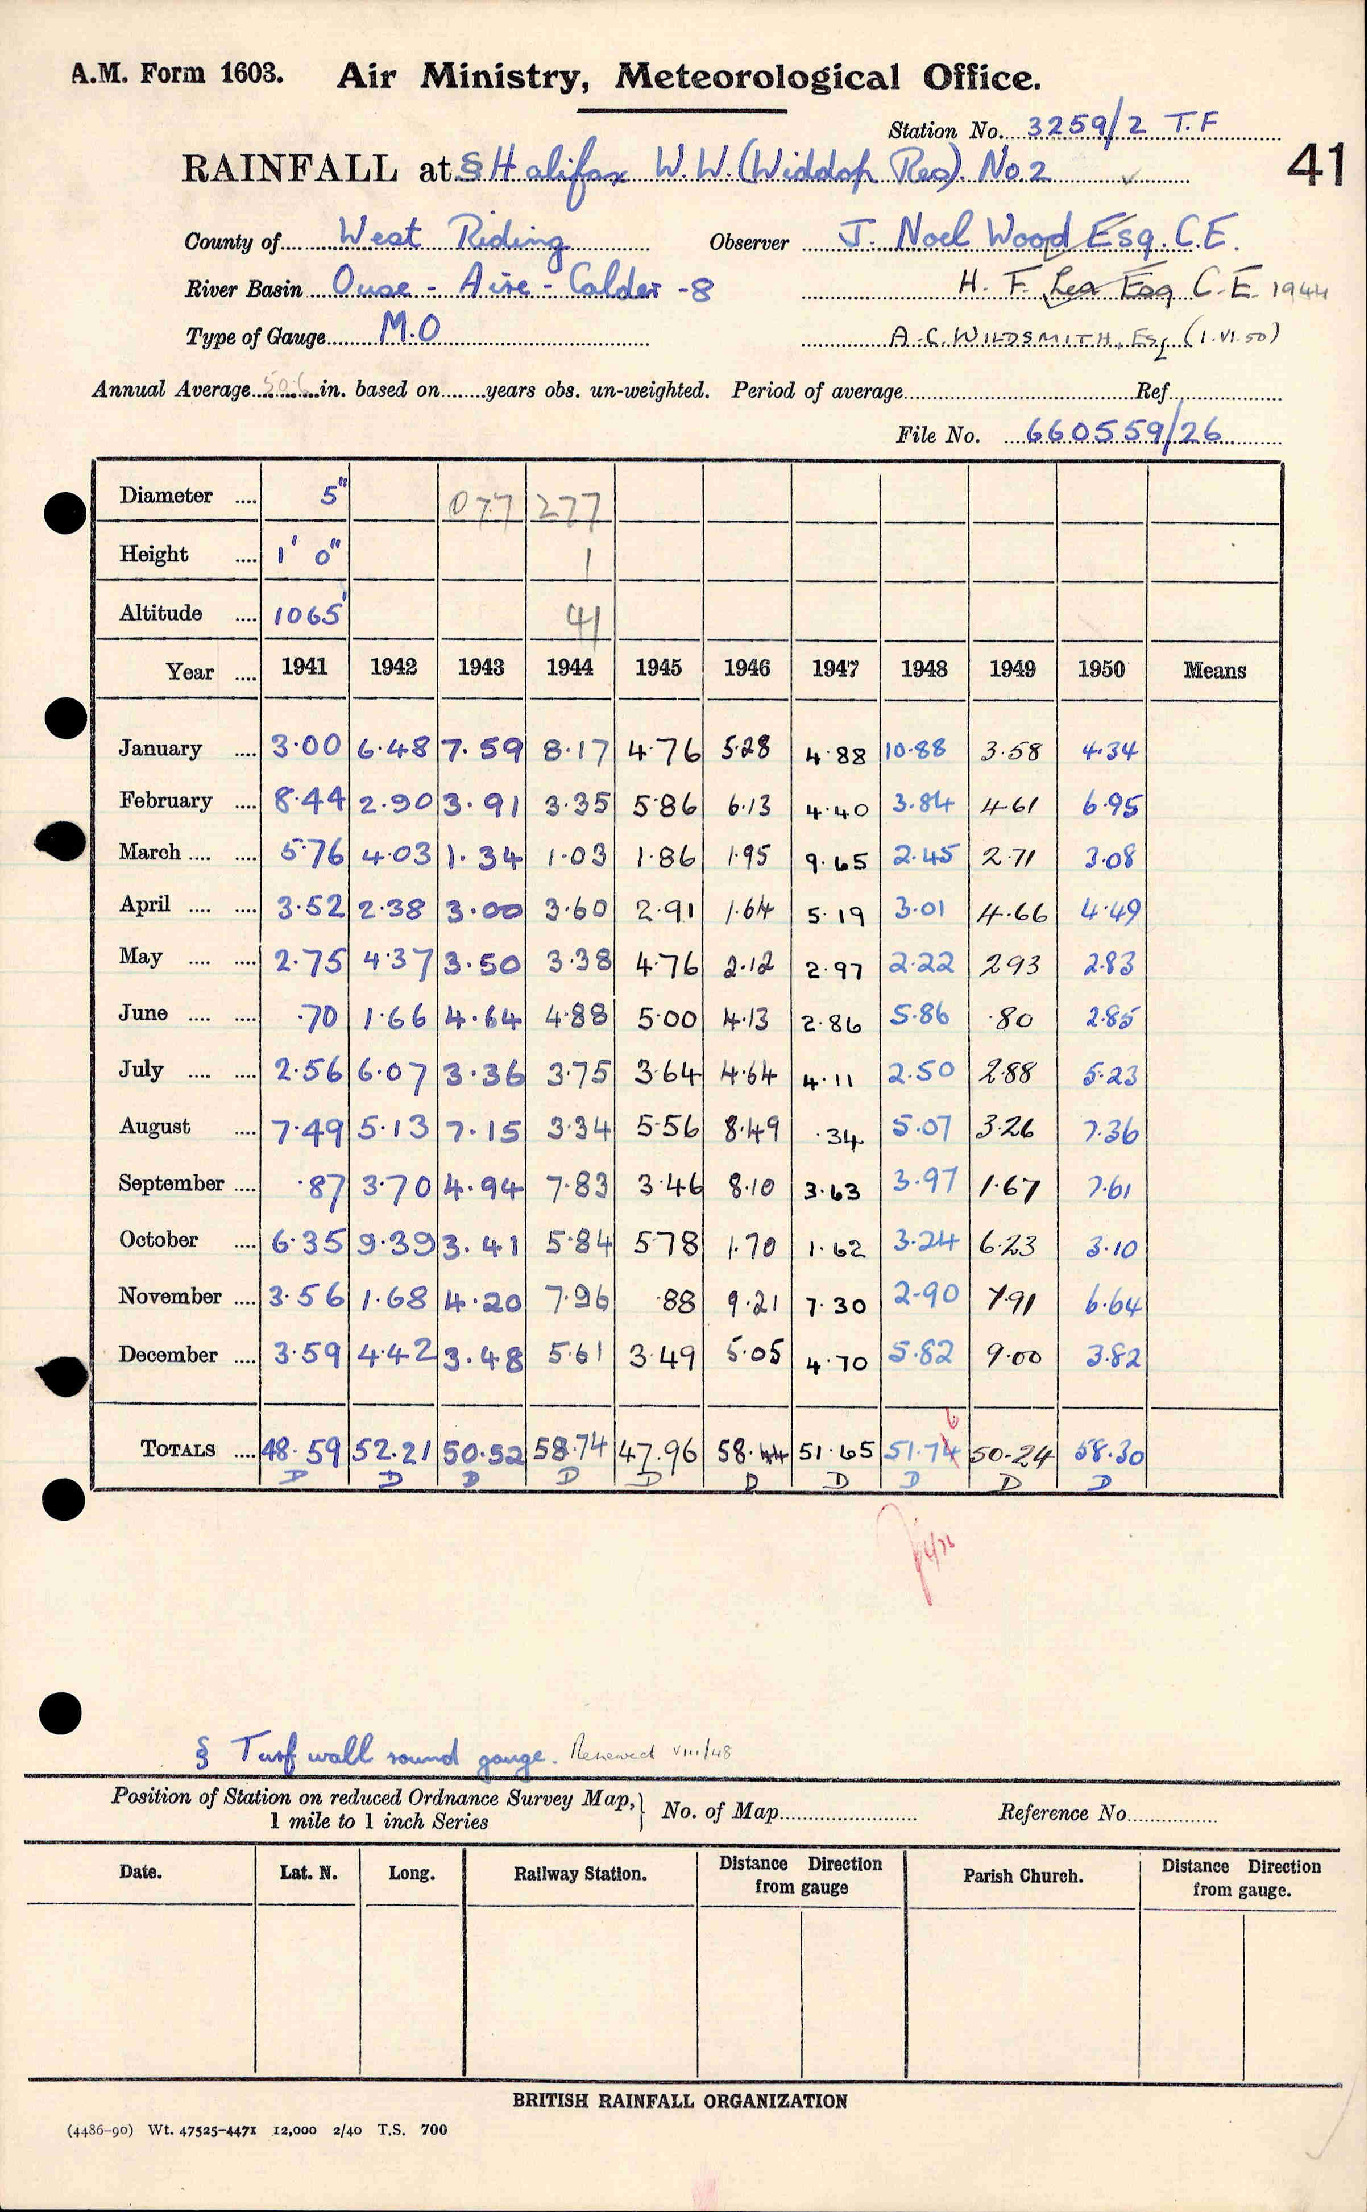 A.M. Form 1603. Air Ministry, Meteorological Office.
Station No. 3259/2 T.F
41
RAINFALL at § Halifax W.W. (Widdop Res). No 2
County of West Riding Observer J. Noel Wood Esq. C.E.
River Basin Ouse - Aire - Calder - 8 H. F. Lea Esq C.E. 1944
Type of Gauge M.O A.C. WILDSMITH, Esq (1.VI.50)
Annual Average 50.6 in. based on years obs. un-weighted. Period of average Ref.
File No. 660559/26
Diameter 5" 077 277
Height 1' 0" 1
Altitude 1065' 41
Year 1941 1942 1943 1944 1945 1946 1947 1948 1949 1950 Means
January 3.00 6.48 7.59 8.17 4.76 5.28 4.88 10.88 3.58 4.34
February 8.44 2.90 3.91 3.35 5.86 6.13 4.40 3.84 4.61 6.95
March 5.76 4.03 1.34 1.03 1.86 1.95 9.65 2.45 2.71 3.08
April 3.52 2.38 3.00 3.60 2.91 1.64 5.19 3.01 4.66 4.49
May 2.75 4.37 3.50 3.38 4.76 2.12 2.97 2.22 2.93 2.83
June .70 1.66 4.64 4.88 5.00 4.13 2.86 5.86 .80 2.85
July 2.56 6.07 3.36 3.75 3.64 4.64 4.11 2.50 2.88 5.23
August 7.49 5.13 7.15 3.34 5.56 8.49 .34 5.07 3.26 7.36
September .87 3.70 4.94 7.83 3.46 8.10 3.63 3.97 1.67 7.61
October 6.35 9.39 3.41 5.84 5.78 1.70 1.62 3.24 6.23 3.10
November 3.56 1.68 4.20 7.96 .88 9.21 7.30 2.90 7.91 6.64
December 3.59 4.42 3.48 5.61 3.49 5.05 4.70 5.82 9.00 3.82
6
TOTALS 48.59 52.21 50.52 58.74 47.96 58.44 51.65 51.74 50.24 58.30
D D D D D D D D D D
§ Turf wall round gauge. Renewed VIII/48
Position of Station on reduced Ordnance Survey Map, 1 mile to 1 inch Series } No. of Map Reference No.
Date. Lat. N. Long. Railway Station. Distance Direction from gauge Parish Church. Distance Direction from gauge.
BRITISH RAINFALL ORGANIZATION
(4486-90) Wt. 47525-4471 12,000 2/40 T.S. 700